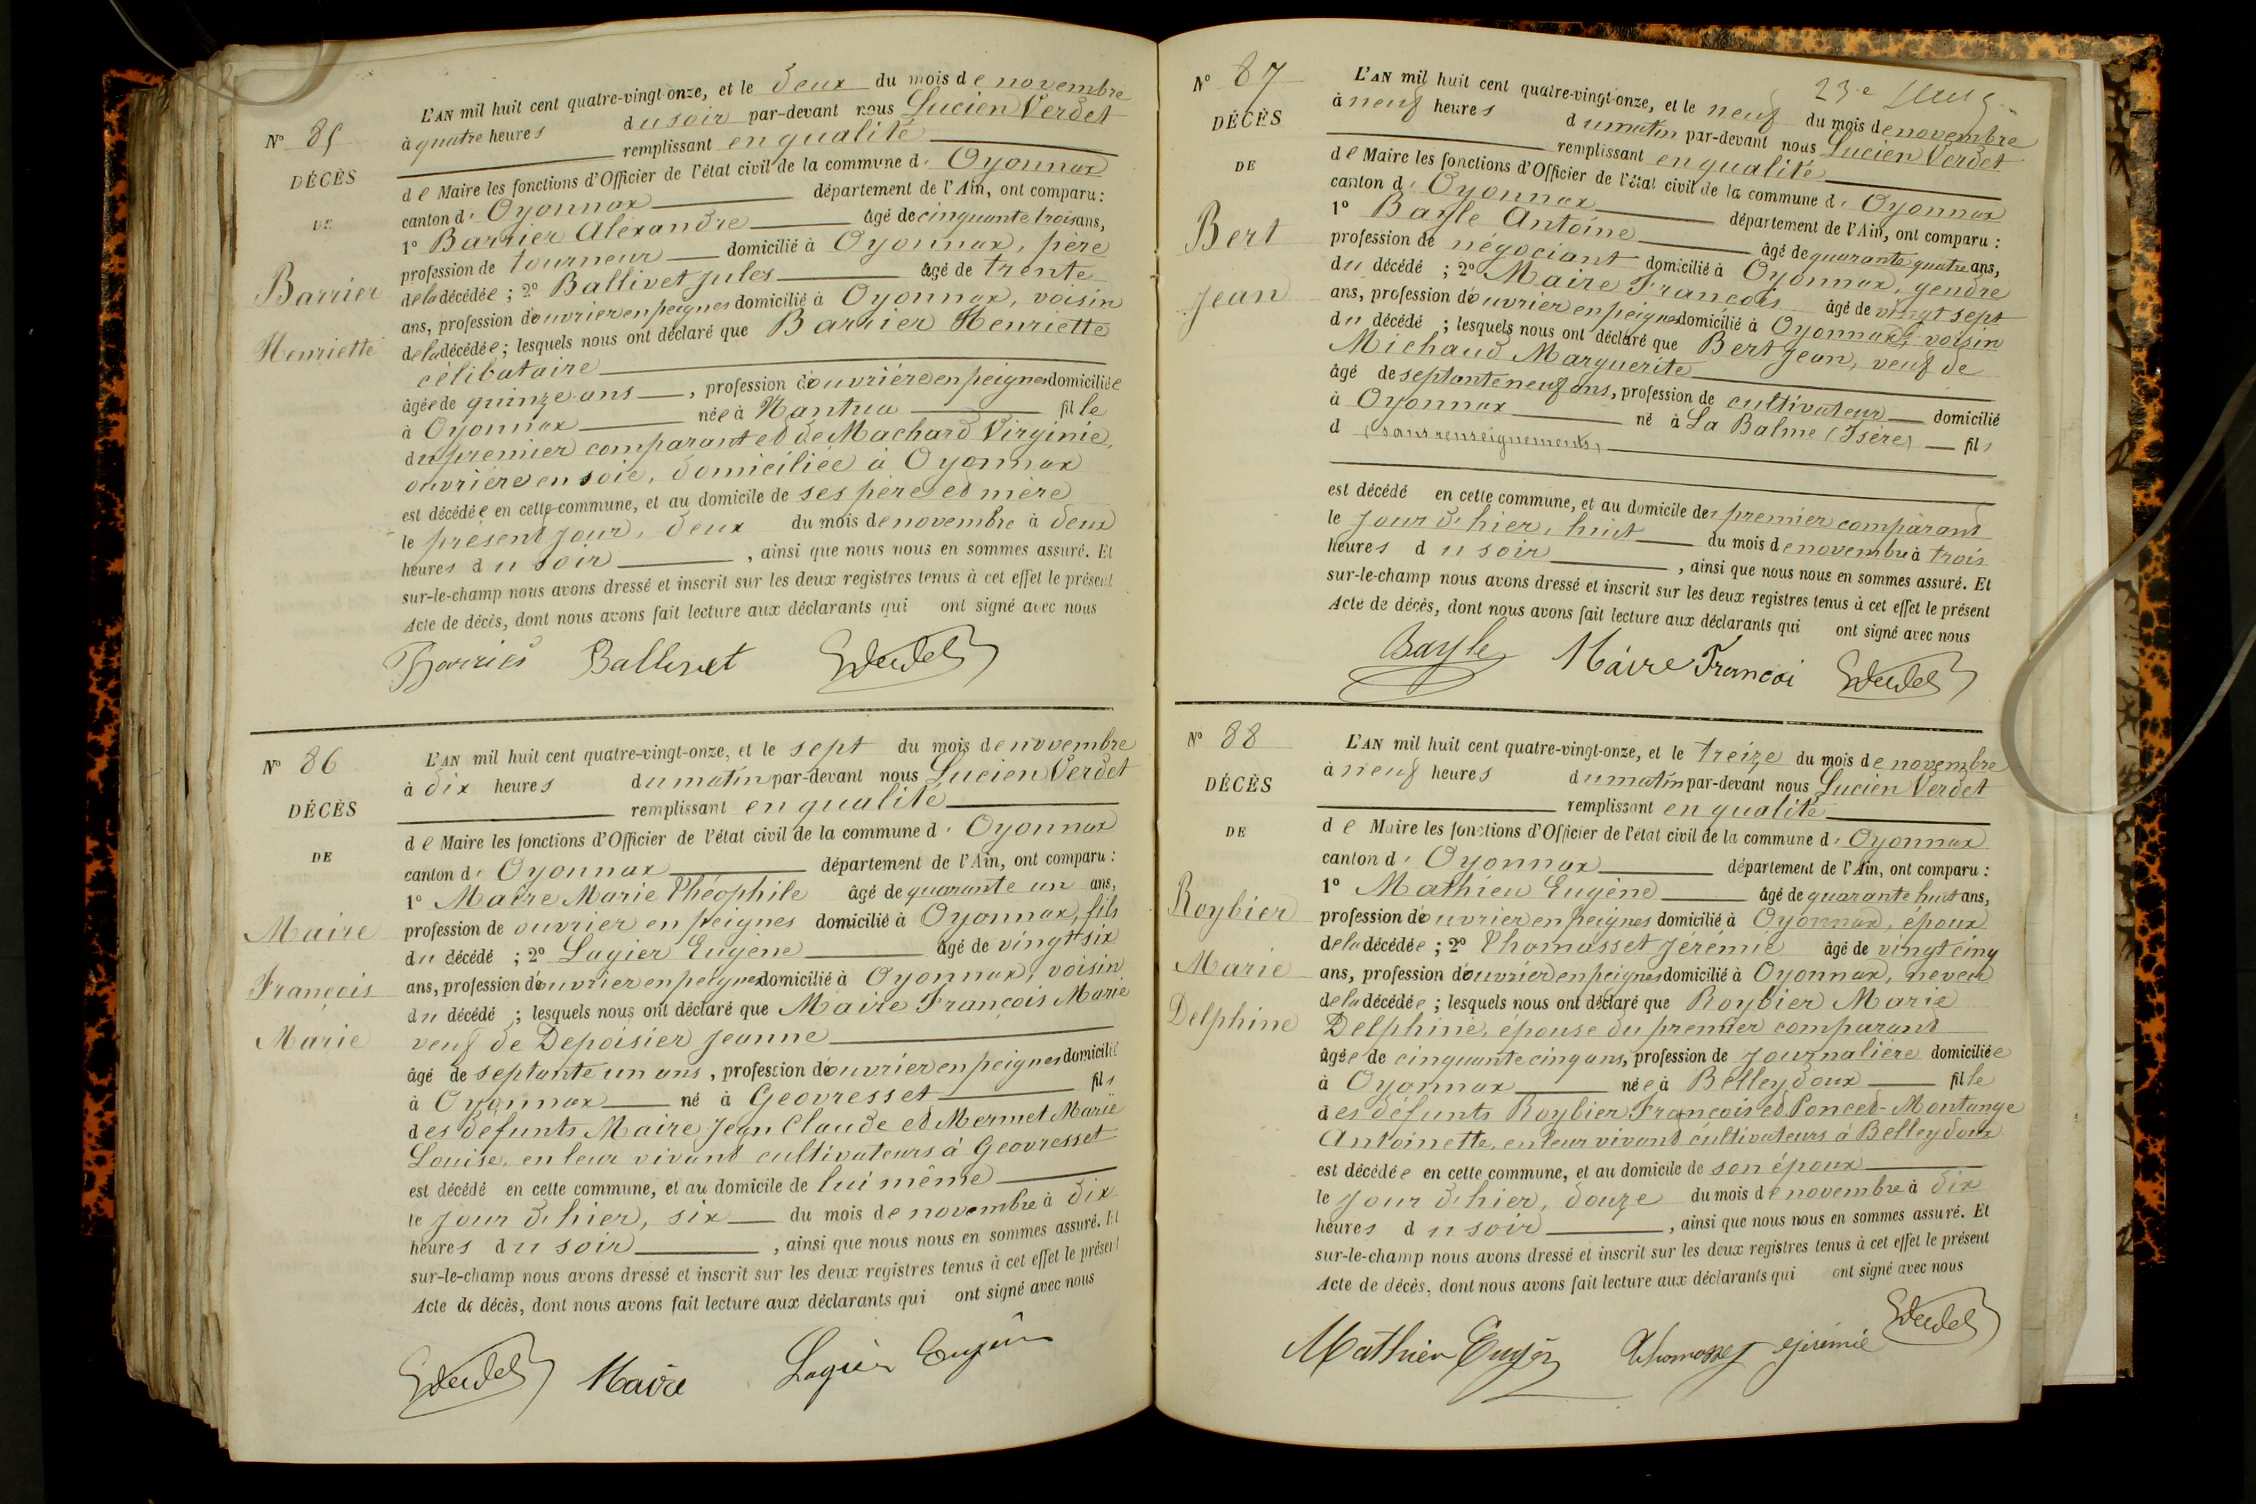 N° 85
DÉCÈS
DE
Barrier
Henriette
L'AN mil huit cent quatre-vingt-onze, et le deux du mois de novembre
à quatre heures du soir par-devant nous Lucien Verdet
remplissant en qualité
de Maire les fonctions d'Officier de l'état civil de la commune d' Oyonnax
canton d' Oyonnax département de l'Ain, ont comparu :
1° Barrier Alexandre âgé de cinquante trois ans,
profession de tourneur domicilié à Oyonnax, père
de la décédée ; 2° Ballivet Jules âgé de trente
ans, profession d'ouvrier en peignes domicilié à Oyonnax, voisin
de la décédée ; lesquels nous ont déclaré que Barrier Henriette
célibataire
âgée de quinze ans, profession d'ouvrière en peignes domiciliée
à Oyonnax née à Nantua fille
du premier comparant et de Machard Virginie,
ouvrière en soie, domiciliée à Oyonnax
est décédée en cette commune, et au domicile de ses père et mère
le présent jour, deux du mois de novembre à deux
heures du soir, ainsi que nous nous en sommes assuré. Et
sur-le-champ nous avons dressé et inscrit sur les deux registres tenus à cet effet le présent
Acte de décès, dont nous avons fait lecture aux déclarants qui ont signé avec nous
Barrier Ballivet
N° 86
DÉCÈS
DE
Maire
François
Marie
L'AN mil huit cent quatre-vingt-onze, et le sept du mois de novembre
à dix heures du matin par-devant nous Lucien Verdet
remplissant en qualité
de Maire les fonctions d'Officier de l'état civil de la commune d' Oyonnax
canton d' Oyonnax département de l'Ain, ont comparu :
1° Maire Marie Théophile âgé de quarante un ans,
profession de ouvrier en peignes domicilié à Oyonnax, fils
du décédé ; 2° Lagier Eugène âgé de vingt six
ans, profession d'ouvrier en peignes domicilié à Oyonnax, voisin
du décédé ; lesquels nous ont déclaré que Maire François Marie
veuf de Depoisier Jeanne
âgé de septante un ans, profession d'ouvrier en peignes domicilié
à Oyonnax né à Geovresset fils
des défunts Maire Jean Claude et Mermet Marie
Louise, en leur vivant cultivateurs à Geovresset
est décédé en cette commune, et au domicile de lui même
le jour d'hier, six du mois de novembre à dix
heures du soir, ainsi que nous nous en sommes assuré. Et
sur-le-champ nous avons dressé et inscrit sur les deux registres tenus à cet effet le présent
Acte de décès, dont nous avons fait lecture aux déclarants qui ont signé avec nous
Maire Lagier Eugène
23e
N° 87
DÉCÈS
DE
Bert
Jean
L'AN mil huit cent quatre-vingt-onze, et le neuf du mois de novembre
à neuf heures du matin par-devant nous Lucien Verdet
remplissant en qualité
de Maire les fonctions d'Officier de l'état civil de la commune d' Oyonnax
canton d' Oyonnax département de l'Ain, ont comparu :
1° Bayle Antoine âgé de quarante quatre ans,
profession de négociant domicilié à Oyonnax, gendre
du décédé ; 2° Maire François âgé de vingt sept
ans, profession d'ouvrier en peignes domicilié à Oyonnax, voisin
du décédé ; lesquels nous ont déclaré que Bert Jean, veuf de
Michaud Marguerite
âgé de septante neuf ans, profession de cultivateur domicilié
à Oyonnax né à La Balme (Isère) fils
d (sans renseignements)
est décédé en cette commune, et au domicile du premier comparant
le jour d'hier, huit du mois de novembre à trois
heures du soir, ainsi que nous nous en sommes assuré. Et
sur-le-champ nous avons dressé et inscrit sur les deux registres tenus à cet effet le présent
Acte de décès, dont nous avons fait lecture aux déclarants qui ont signé avec nous
Bayle Maire Francoi
N° 88
DÉCÈS
DE
Roybier
Marie
Delphine
L'AN mil huit cent quatre-vingt-onze, et le treize du mois de novembre
à neuf heures du matin par-devant nous Lucien Verdet
remplissant en qualité
de Maire les fonctions d'Officier de l'état civil de la commune d' Oyonnax
canton d' Oyonnax département de l'Ain, ont comparu :
1° Mathieu Eugène âgé de quarante huit ans,
profession d'ouvrier en peignes domicilié à Oyonnax, époux
de la décédée ; 2° Thomasset Jérémie âgé de vingt cinq
ans, profession d'ouvrier en peignes domicilié à Oyonnax, neveu
de la décédée ; lesquels nous ont déclaré que Roybier Marie
Delphine, épouse du premier comparant
âgée de cinquante cinq ans, profession de journalière domiciliée
à Oyonnax née à Belleydoux fille
des défunts Roybier François et Poncet-Montange
Antoinette, en leur vivant cultivateurs à Belleydoux
est décédée en cette commune, et au domicile de son époux
le jour d'hier, douze du mois de novembre à dix
heures du soir, ainsi que nous nous en sommes assuré. Et
sur-le-champ nous avons dressé et inscrit sur les deux registres tenus à cet effet le présent
Acte de décès, dont nous avons fait lecture aux déclarants qui ont signé avec nous
Mathieu Eugèn Thomasset Jérémie